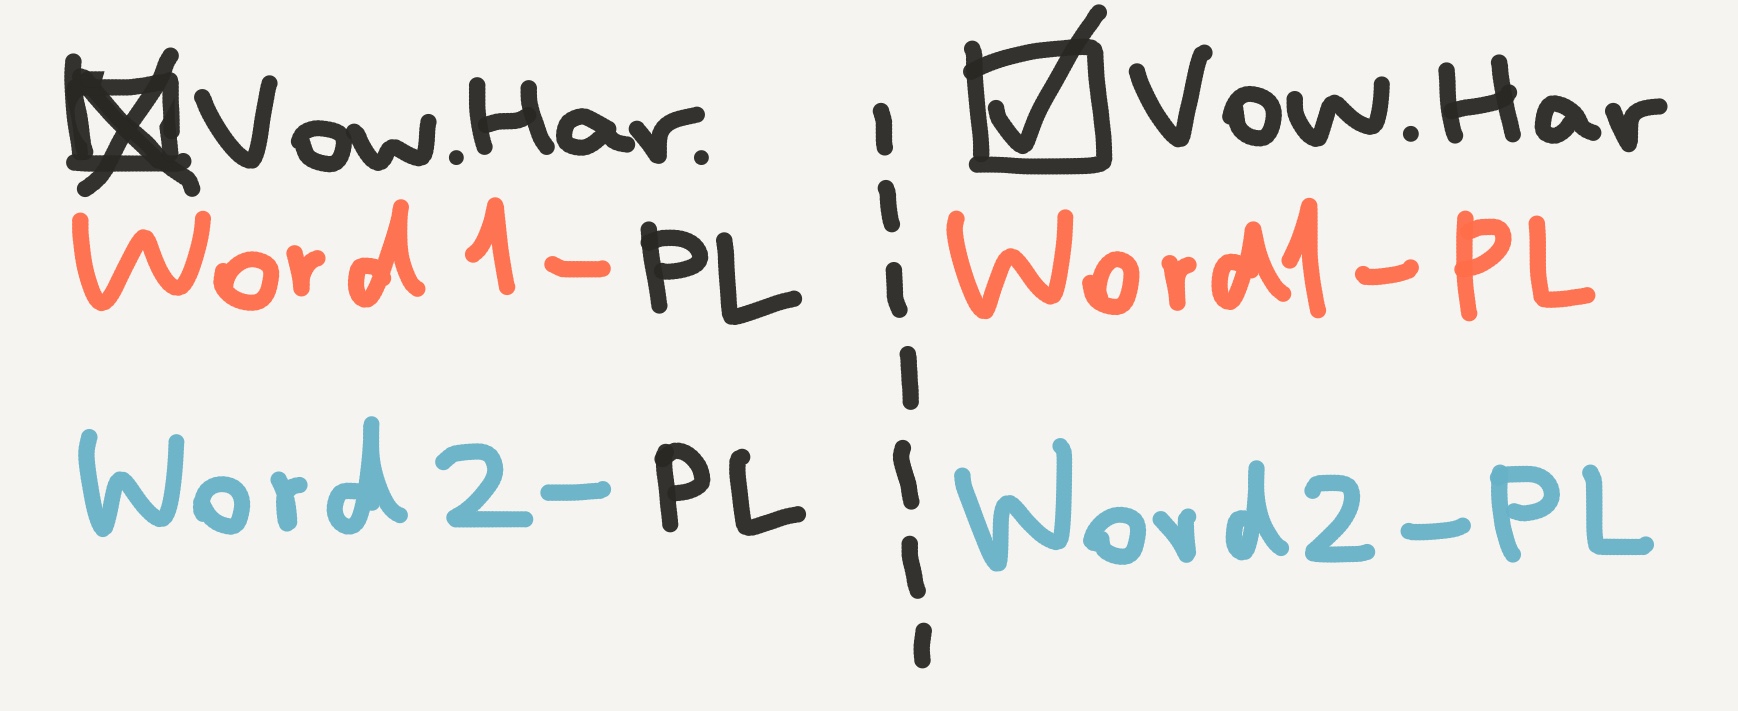 Vow.Har.
Word 1-PL
Word 2-PL
Vow.Har
Word1-PL
Word2-PL